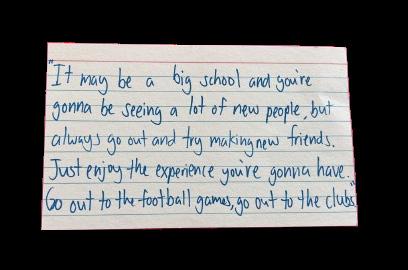 "It may be a big school and you're
gonna be seeing a lot of new people, but
always go out and try making new friends.
Just enjoy the experience you're gonna have.
Go out to the football games, go out to the clubs"